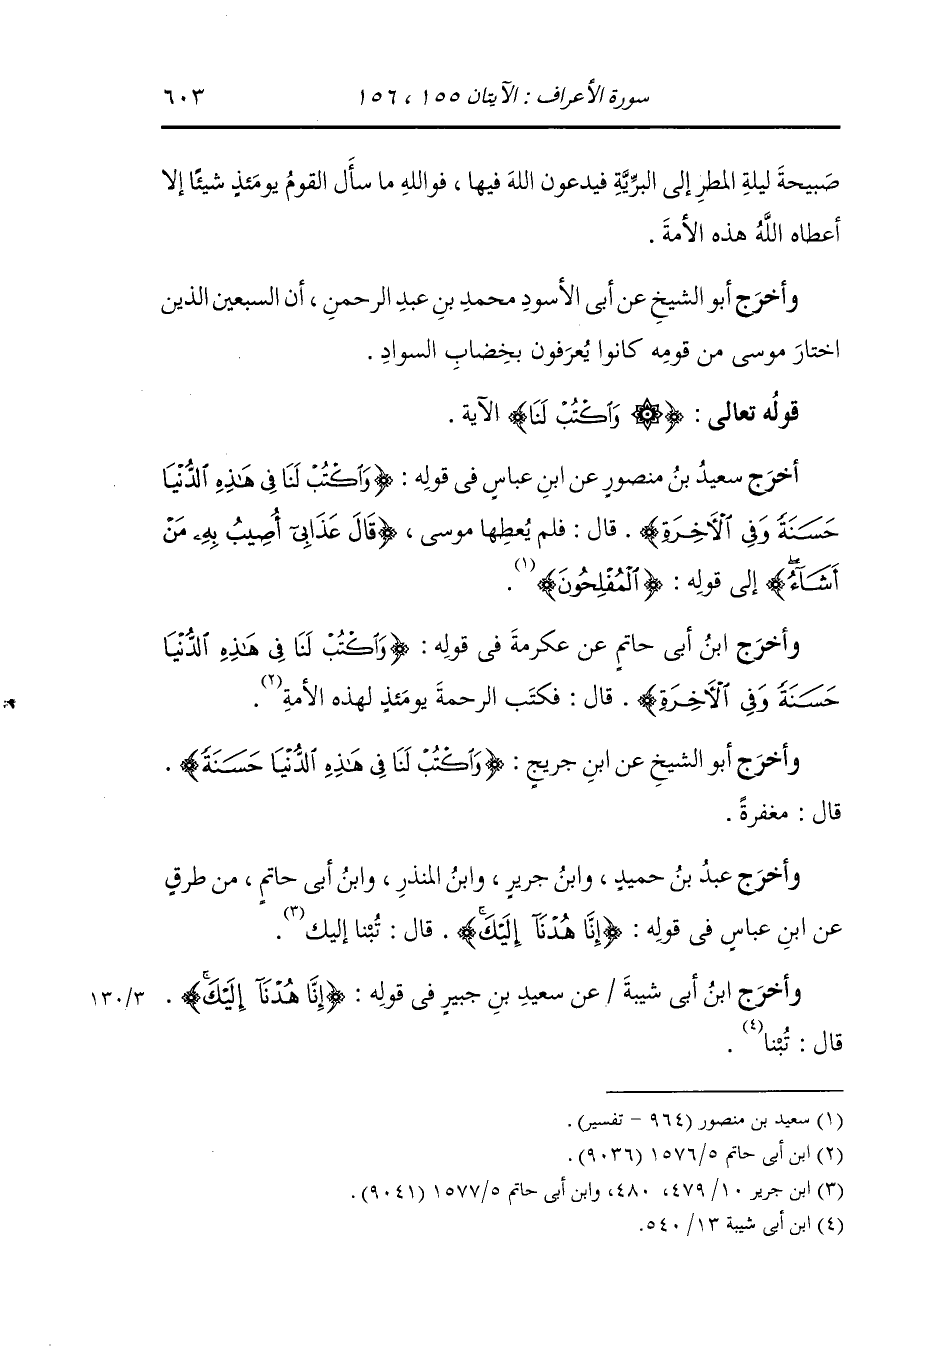 سورة الأعراف : الآيتان ١٥٥ ، ١٥٦ ٦٠٣
صَبيحةَ ليلةِ المطرِ إلى البرِّيَّةِ فيدعون اللهَ فيها ، فواللهِ ما سأَل القومُ يومَئذٍ شيئًا إلا
أعطاه اللَّهُ هذه الأمةَ .
وأخرَج أبو الشيخِ عن أبى الأسودِ محمدِ بنِ عبدِ الرحمنِ ، أن السبعين الذين
اختارَ موسى من قومِه كانوا يُعرَفون بخِضابِ السوادِ .
قولُه تعالى : ﴿۞ وَٱكْتُبْ لَنَا﴾ الآية .
أخرَج سعيدُ بنُ منصورٍ عن ابنِ عباسٍ فى قولِه : ﴿وَٱكْتُبْ لَنَا فِى هَـٰذِهِ ٱلدُّنْيَا
حَسَنَةً وَفِى ٱلْـَٔاخِرَةِ﴾ . قال : فلم يُعطِها موسى ، ﴿قَالَ عَذَابِىٓ أُصِيبُ بِهِۦ مَنْ
أَشَآءُۖ﴾ إلى قولِه : ﴿ٱلْمُفْلِحُونَ﴾(١) .
وأخرَج ابنُ أبى حاتمٍ عن عكرمةَ فى قولِه : ﴿وَٱكْتُبْ لَنَا فِى هَـٰذِهِ ٱلدُّنْيَا
حَسَنَةً وَفِى ٱلْـَٔاخِرَةِ﴾ . قال : فكتَب الرحمةَ يومَئذٍ لهذه الأمةِ(٢) .
وأخرَج أبو الشيخِ عن ابنِ جريجٍ : ﴿وَٱكْتُبْ لَنَا فِى هَـٰذِهِ ٱلدُّنْيَا حَسَنَةً﴾ .
قال : مغفرةً .
وأخرَج عبدُ بنُ حميدٍ ، وابنُ جريرٍ ، وابنُ المنذرِ ، وابنُ أبى حاتمٍ ، من طرقٍ
عن ابنِ عباسٍ فى قولِه : ﴿إِنَّا هُدْنَآ إِلَيْكَۚ﴾ . قال : تُبْنا إليك(٣) .
وأخرَج ابنُ أبى شيبةَ / عن سعيدِ بنِ جبيرٍ فى قولِه : ﴿إِنَّا هُدْنَآ إِلَيْكَۚ﴾ . ١٣٠/٣
قال : تُبْنا(٤) .
(١) سعيد بن منصور (٩٦٤ - تفسير) .
(٢) ابن أبى حاتم ١٥٧٦/٥ (٩٠٣٦) .
(٣) ابن جرير ١٠/ ٤٧٩، ٤٨٠، وابن أبى حاتم ١٥٧٧/٥ (٩٠٤١) .
(٤) ابن أبى شيبة ١٣/ ٥٤٠.